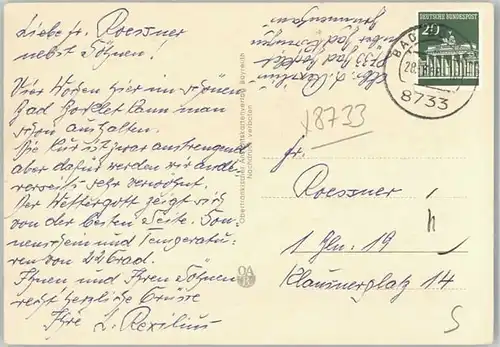 Liebe Fr. Roessner
nebst Söhnen!
Vier Wochen hier im schönen
Bad Bocklet kann man
schon aushalten.
Die Kur ist zwar anstrengend
aber dafür werden wir andr.
verseits sehr verwöhnt.
Der Wettergott zeigt sich
von der besten Seite. Son-
nenschein und Temperatu-
ren von 22 Grad.
Ihnen und Ihren Söhnen
recht herzliche Grüsse
Ihre L. Rexilius
Oberfränkischer Ansichtskartenverlag Bayreuth
Nachdruck verboten
OA
B
8733 Bad Bocklet
DEUTSCHE BUNDESPOST
20
BAD
28.
8733
x8733
Fr.
Roessner
1 Bln. 19
Klausnerplatz 14
h
S